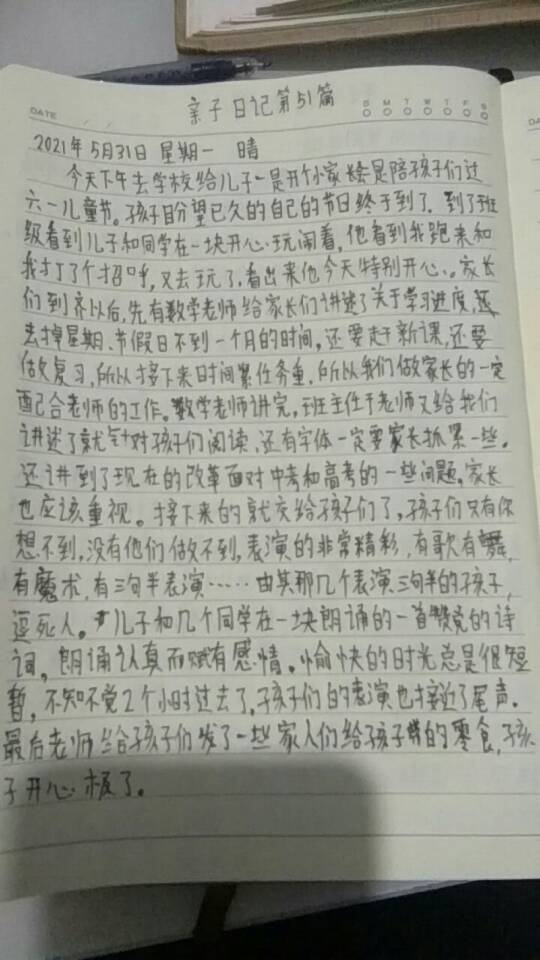 亲子日记第51篇
DATE
S M T W T F S
DA
2021年5月31日 星期一 晴
今天下午去学校给儿子一是开个小家长会是陪孩子们过
六一儿童节。孩子目分望已久的自己的节日终于到了，到了班
级看到儿子和同学在一块开心玩闹着，他看到我跑来和
我打了个招呼，又去玩了，看出来他今天特别开心。家长
们到齐以后，先有数学老师给家长们讲述了关于学习进度，还
去掉星期、节假日不到一个月的时间，还要赶新课，还要
做复习，所以接下来时间紧任务重，所以我们做家长的一定
配合老师的工作。数学老师讲完，班主任于老师又给我们
讲述了就针对孩子们阅读，还有字体一定要家长抓紧一些。
还讲到了现在的改革面对中考和高考的一些问题，家长
也应该重视。接下来的就交给孩子们了，孩子们只有你
想不到，没有他们做不到，表演的非常精彩，有歌有舞，
有魔术，有三句半表演……由其那几个表演三句半的孩子，
逗死人。儿子和几个同学在一块朗诵的一首赞党的诗
词，朗诵认真而赋有感情。愉快的时光总是很短
暂，不知不觉2个小时过去了，孩子们的表演也接近了尾声.
最后老师给孩子们发了一些家人们给孩子带的零食，孩
子开心极了。